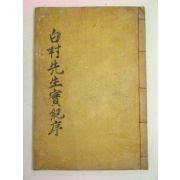 白村先生實紀序